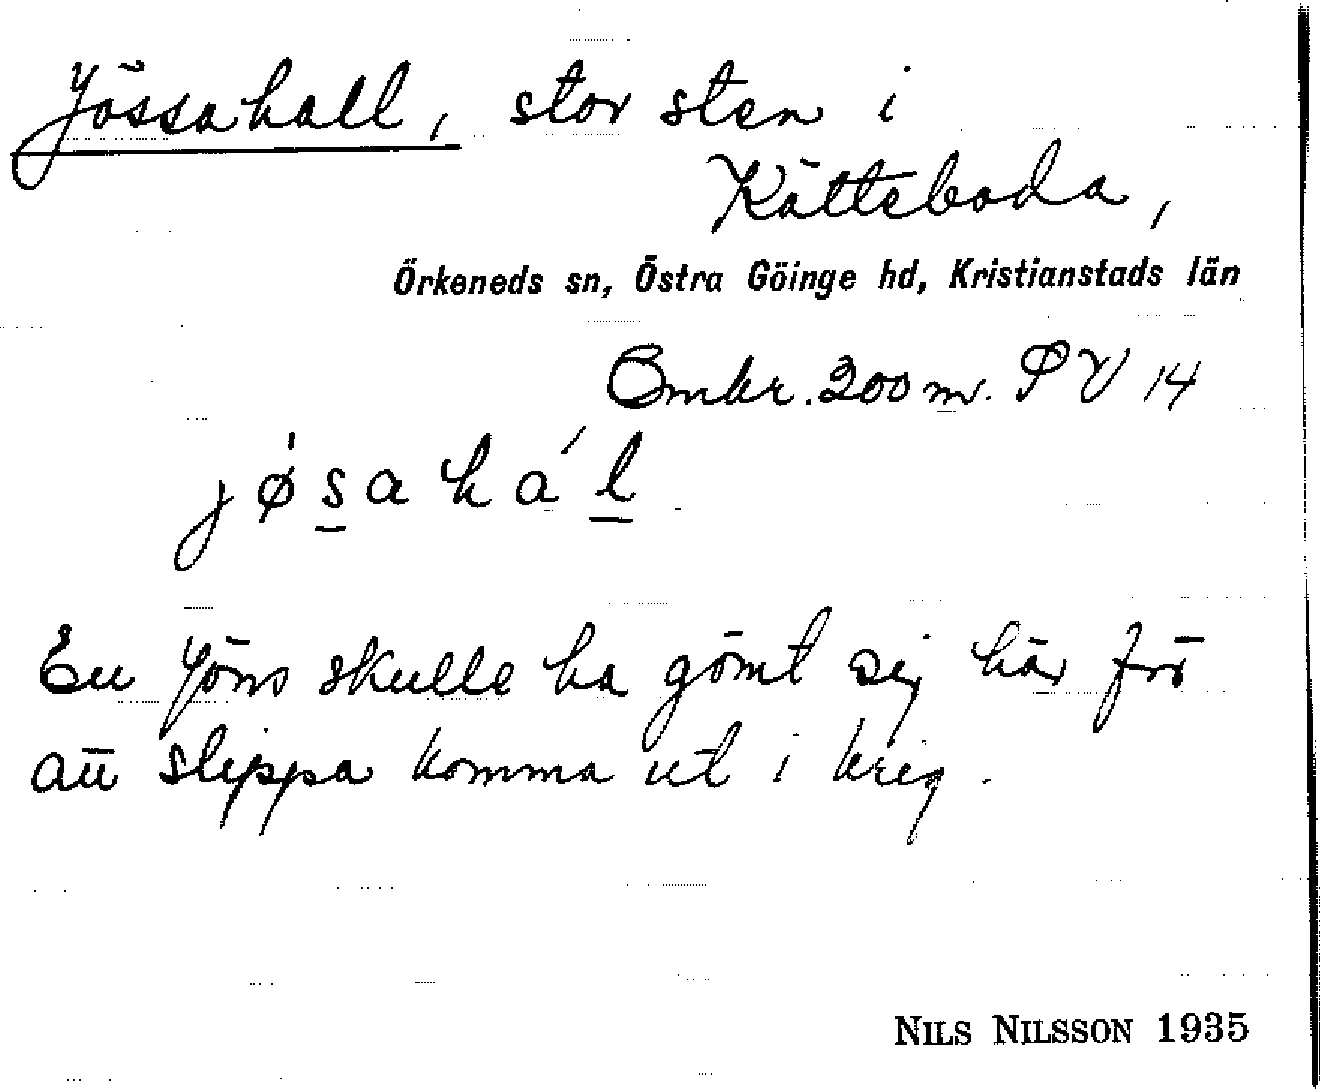 Jössahall, stor sten i
Kätteboda,
Örkeneds sn, Östra Göinge hd, Kristianstads län
Omkr. 200 m. SV 14
jøsahál
En Jöns skulle ha gömt sig här för
att slippa komma ut i krig.
NILS NILSSON 1935